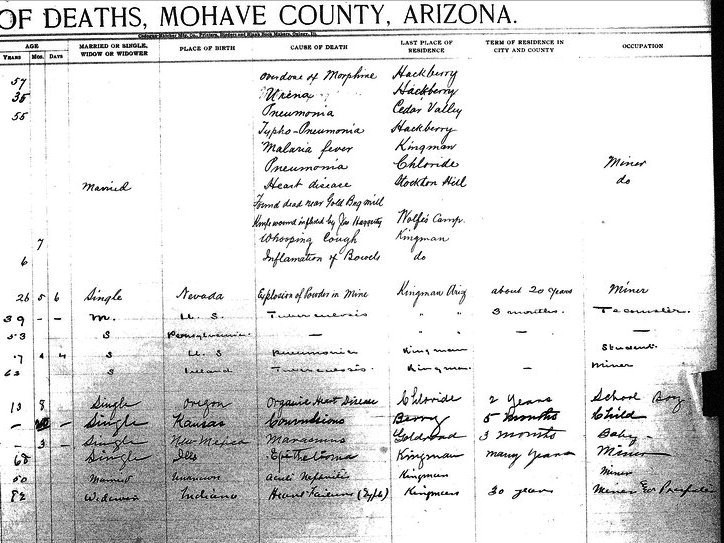 OF DEATHS, MOHAVE COUNTY, ARIZONA.
AGE
YEARS MOS. DAYS
MARRIED OR SINGLE, WIDOW OR WIDOWER
PLACE OF BIRTH
CAUSE OF DEATH
LAST PLACE OF RESIDENCE
TERM OF RESIDENCE IN CITY AND COUNTY
OCCUPATION
57 overdone of Morphine Hackberry
35 Hackberry
55 Pneumonia Cedar Valley
Typho-Pneumonia Hackberry
Malaria fever Kingman
Pneumonia Chloride Miner
Married Heart disease Stockton Hill do
Found dead near Gold Bug mill
Knife wound inflicted by Jim Haggerty Wolfe's Camp.
7 Whooping Cough Kingman
6 Inflamation of Bowels do
26 5 6 Single Nevada Explosion of Powder in Mine Kingman Ariz about 20 years Miner
39 - - M. U. S. Tuberculosis " " 3 months. Teamster.
53 S Pennsylvania. — " " —
S U. S Pneumonia Kingman Student.
S Ireland Tuberculosis. Kingman. — Miner
13 8 Single Oregon Organic Heart Disease Chloride 2 years School Boy
- - Single Kansas Convulsions Berry 5 months Child
- 3 - Single New Mexico Marasmus Goldroad 3 months Baby -
68 Single Ills Epithelioma Kingman many years Miner
50 Married Unknown Acute Nephritis Kingman Miner
82 Widower Indiana Heart Failure Kingman 30 years Miner & Prospector